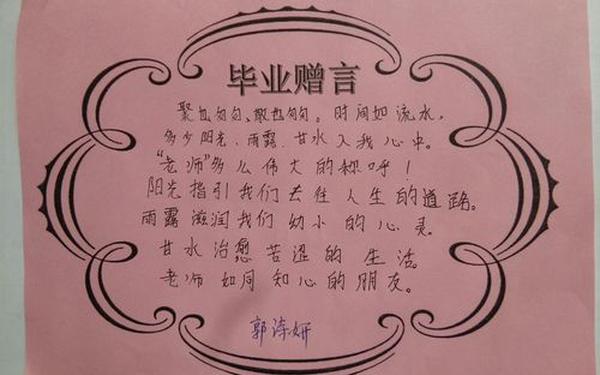 毕业赠言
聚也匆匆、散也匆匆。时间如流水，
多少阳光、雨露、甘水入我心中。
“老师”多么伟大的称呼！
阳光指引我们去往人生的道路。
雨露滋润我们幼小的心灵。
甘水治愈苦涩的生活。
老师如同知心的朋友。
郭涛妍